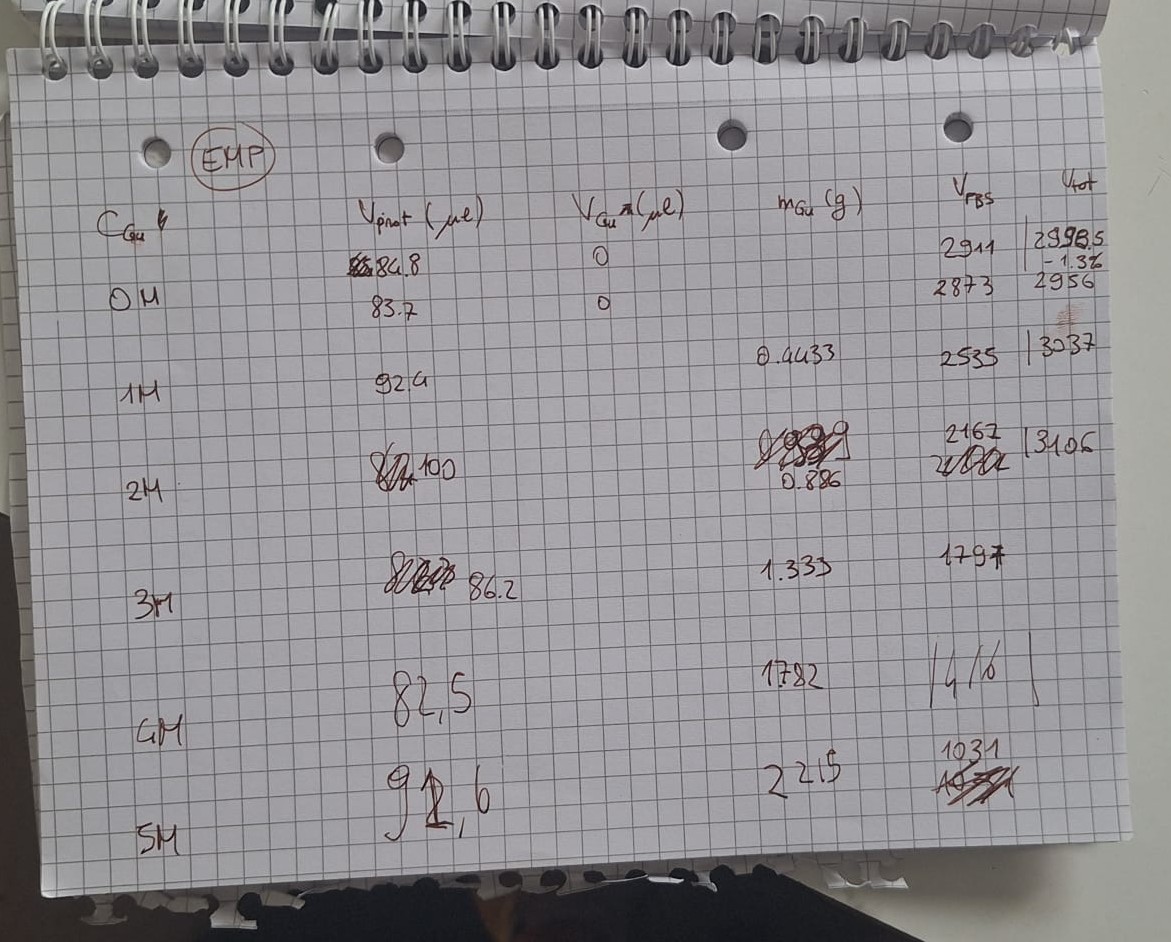 EMP
C_Gu V_prot (μl) V_Gu (μl) m_Gu (g) V_PBS V_tot
84.8 0 2911 | 2998.5
-1.3%
0M 83.7 0 2873 2956
1M 92.4 0.4433 2535 | 3037
2M 100 0.886 2167 | 3106
3M 86.2 1.333 1797
4M 82,5 1.782 1416
5M 91,6 2215 1031